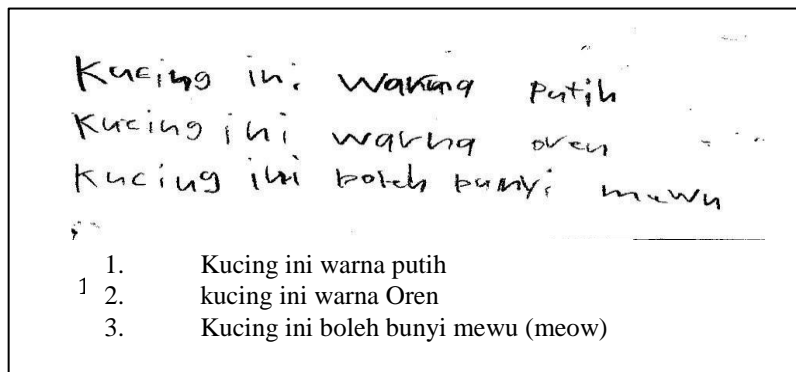 Kucing ini warna putih
Kucing ini warna oren
Kucing ini boleh bunyi mewu
1. Kucing ini warna putih
1
2. kucing ini warna Oren
3. Kucing ini boleh bunyi mewu (meow)